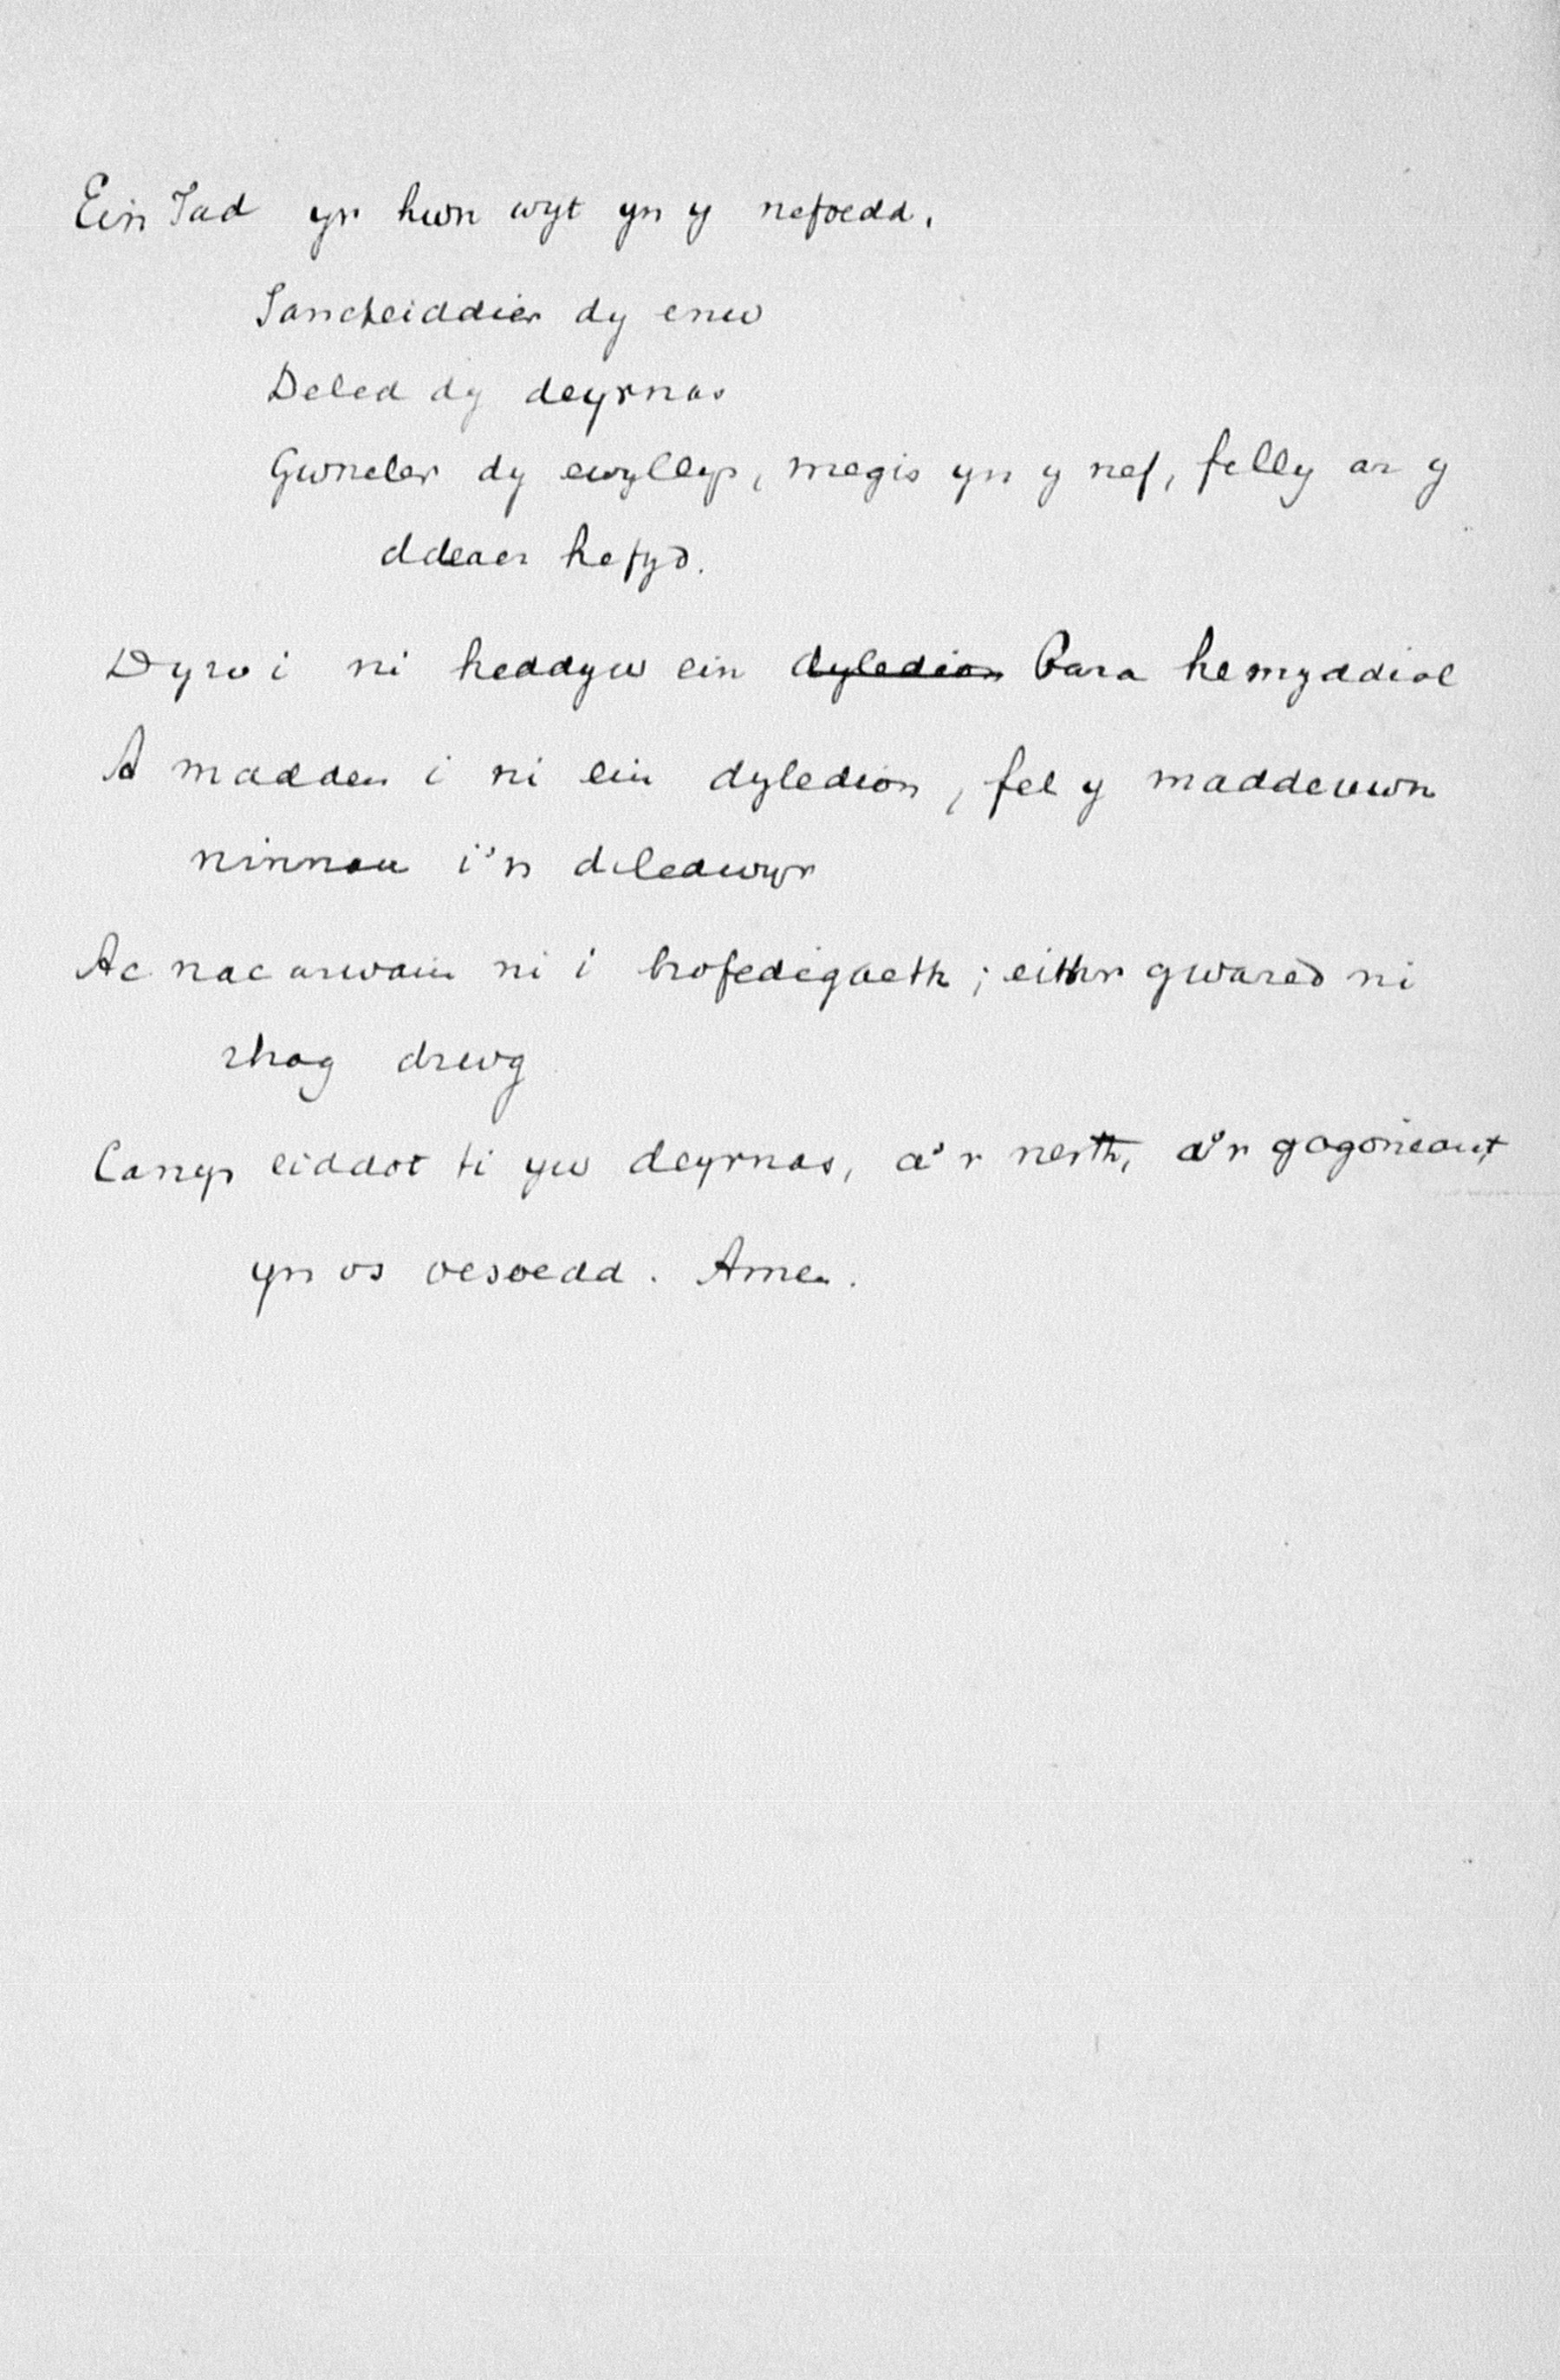 Ein Tad yr hwn wyt yn y nefoedd.
Sancteiddier dy enw
Deled dy deyrnas
Gwneler dy ewyllys, megis yn y nef, felly ar y
ddeaer hefyd.
Dyro i ni heddyw ein dyledion Bara hemyddiol
A madden i ni ein dyledion, fel y maddeuwn
ninnau i'n diledwyr
Ac nac arwain ni i brofedigaeth; eithr gwared ni
rhag drwg
Canys eiddot ti yw deyrnas, a'r nerth, a'r gogoneant,
yn os oesoedd. Amen.